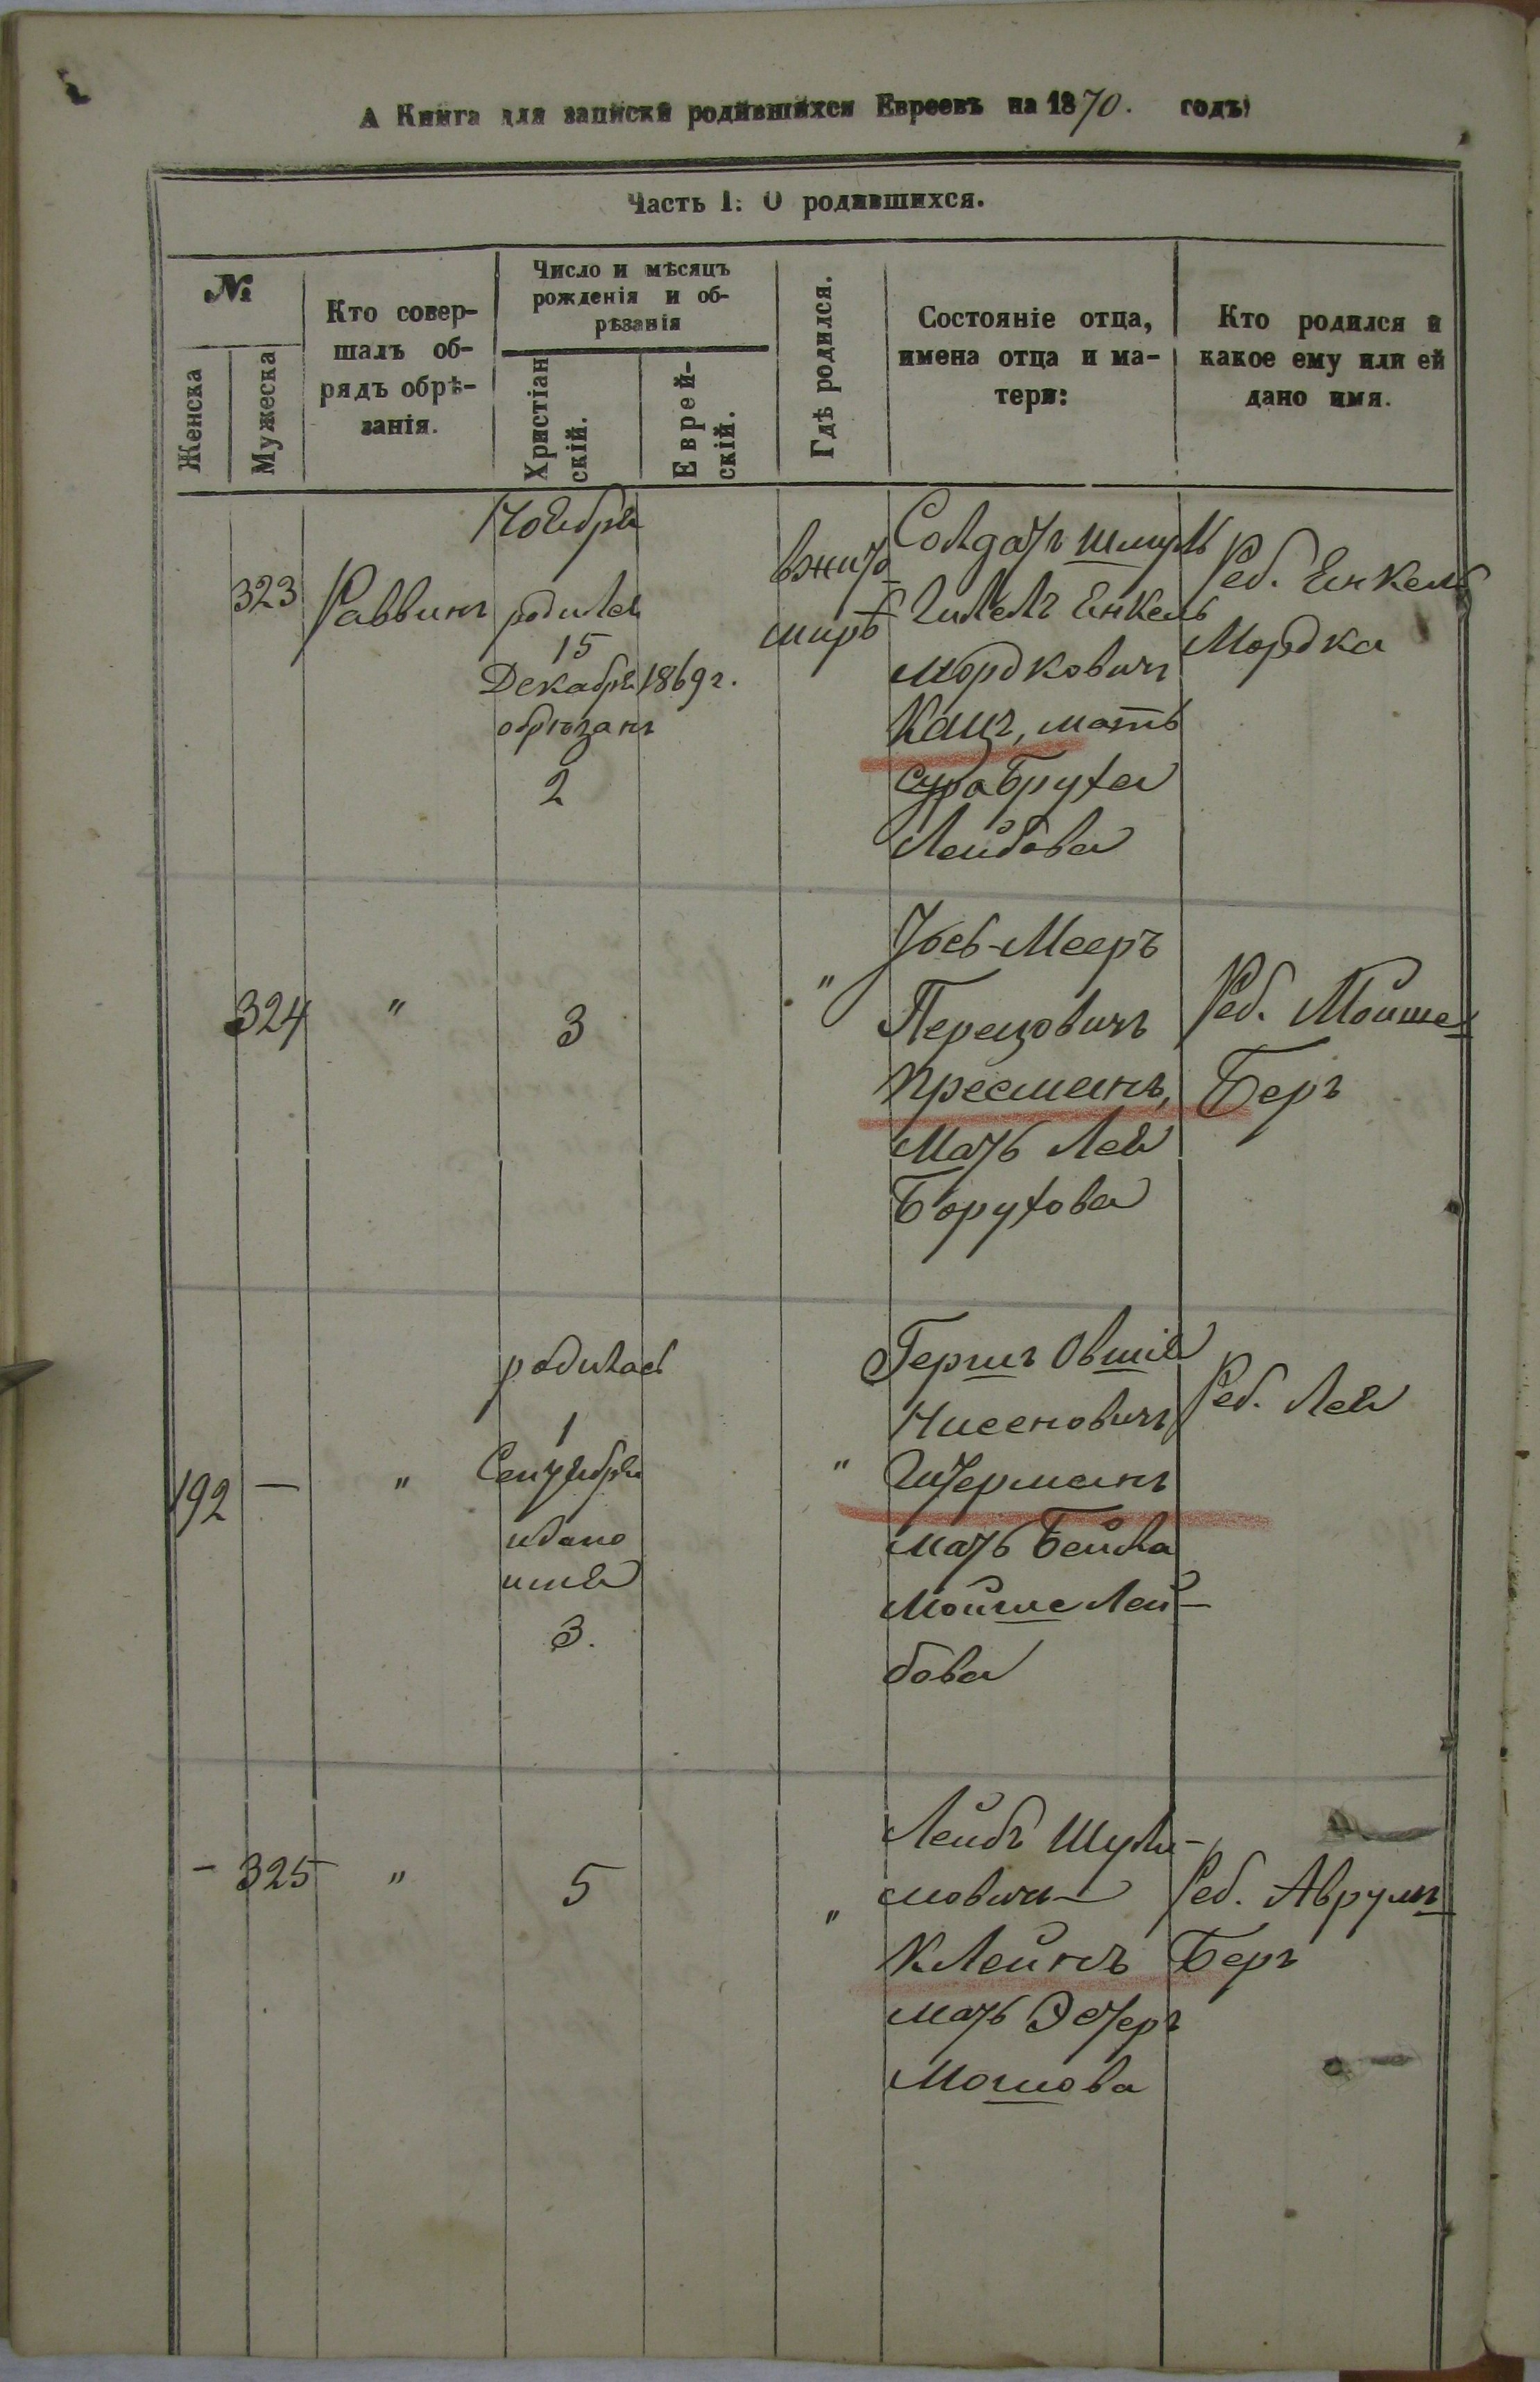 А Книга для записки родившихся Евреевъ на 1870. годъ
Часть I. О родившихся.
№
Женска
Мужеска
Кто совер-
шалъ об-
рядъ обрѣ-
занія.
Число и мѣсяцъ
рожденія и об-
рѣзанія
Христіан
скій.
Еврей-
скій.
Гдѣ родился.
Состояніе отца,
имена отца и ма-
тери:
Кто родился и
какое ему или ей
дано имя.
323
Раввинъ
Ноября
родился
15
Декабря 1869 г.
обрѣзанъ
2
вжито
мирѣ
Солдатъ
Енкель
Мордковичъ
Кацъ, мать
Сура Бруха
Лейбова
Реб. Енкель
Мордка
324
"
3
"
Іось-Мееръ
Перецовичъ
Кресманъ,
Мать Лея
Борухова
Реб. Мойше
Беръ
192
—
"
родилась
1
Сентября
имя
3.
"
Гершъ Овшія
Нисеновичъ
Штерманъ
мать Бейла
Мойше Лей-
бова
Реб. Лея
-
325
"
5
"
Лейбъ Шули-
мовичъ
Клейнъ
мать Эстеръ
Мошова
Реб. Аврумъ
Беръ